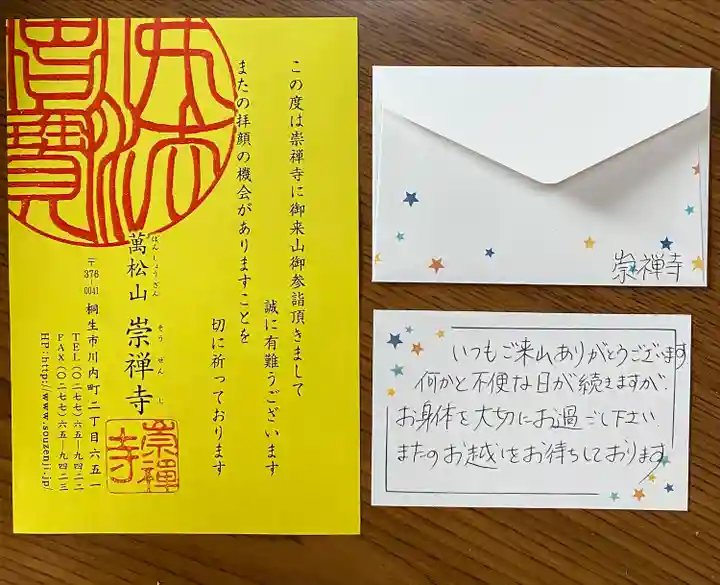 この度は崇禅寺に御来山御参詣頂きまして
誠に有難うございます
またの拝顔の機会がありますことを
切に祈っております
ばんしょうざん そうせんじ
萬松山 崇禅寺
〒376-0041 桐生市川内町二丁目六五一
TEL(〇二七七)六五―九四二二
FAX(〇二七七)六五―九四二三
HP:http://www.souzenji.jp/
崇禅寺
崇禅寺
いつもご来山ありがとうございます
何かと不便な日が続きますが、
お身体を大切にお過ごし下さい
またのお越しをお待ちしております